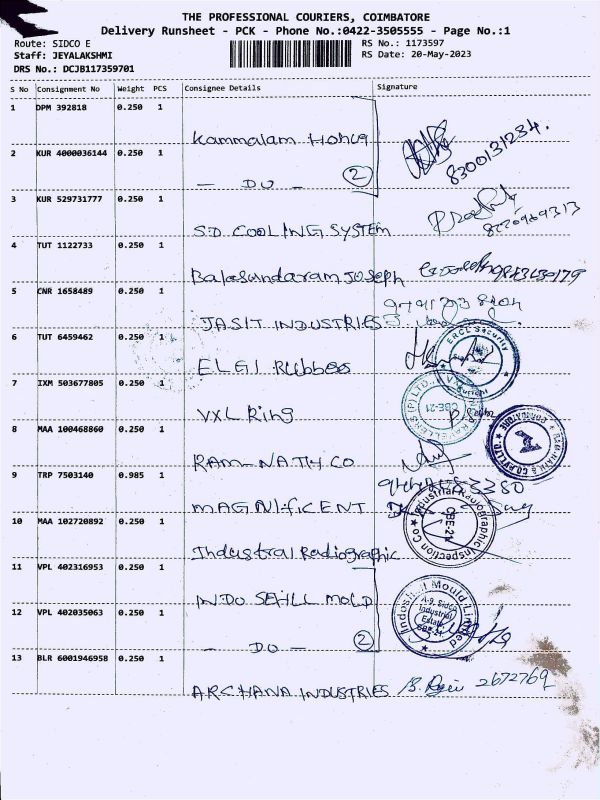 THE PROFESSIONAL COURIERS, COIMBATORE
Delivery Runsheet - PCK - Phone No.:0422-3505555 - Page No.:1
Route: SIDCO E
RS No.: 1173597
Staff: JEYALAKSHMI
RS Date: 20-May-2023
DRS No.: DCJB117359701
S No Consignment No Weight PCS Consignee Details Signature
1 DPM 392818 0.250 1
Kammalam
8300131234.
2 KUR 4000036144 0.250 1
- DO - 2
3 KUR 529731777 0.250 1
S.D COOLING SYSTEM
4 TUT 1122733 0.250 1
Balasundaram JOSEPH
5 CNR 1658489 0.250 1
JASIT INDUSTRIES
6 TUT 6459462 0.250 1
ELGI Rubbers
ERCL Security
7 IXM 503677805 0.250 1
VXL Ring
CBE-21
8 MAA 100468860 0.250 1
RAM-NATH CO
9 TRP 7503140 0.985 1
MAGNIFICENT
10 MAA 102720892 0.250 1
Industral Radiographic
Industrial Radiographic Inspection Co
CBE-21
11 VPL 402316953 0.250 1
INDO SHELL MOLD
Indoshell Mould Limited
A-9, Sidco
Industrial
Estate,
CBE-21
12 VPL 402035063 0.250 1
- DO - 2
13 BLR 6001946958 0.250 1
ARCHANA INDUSTRIES 2672769